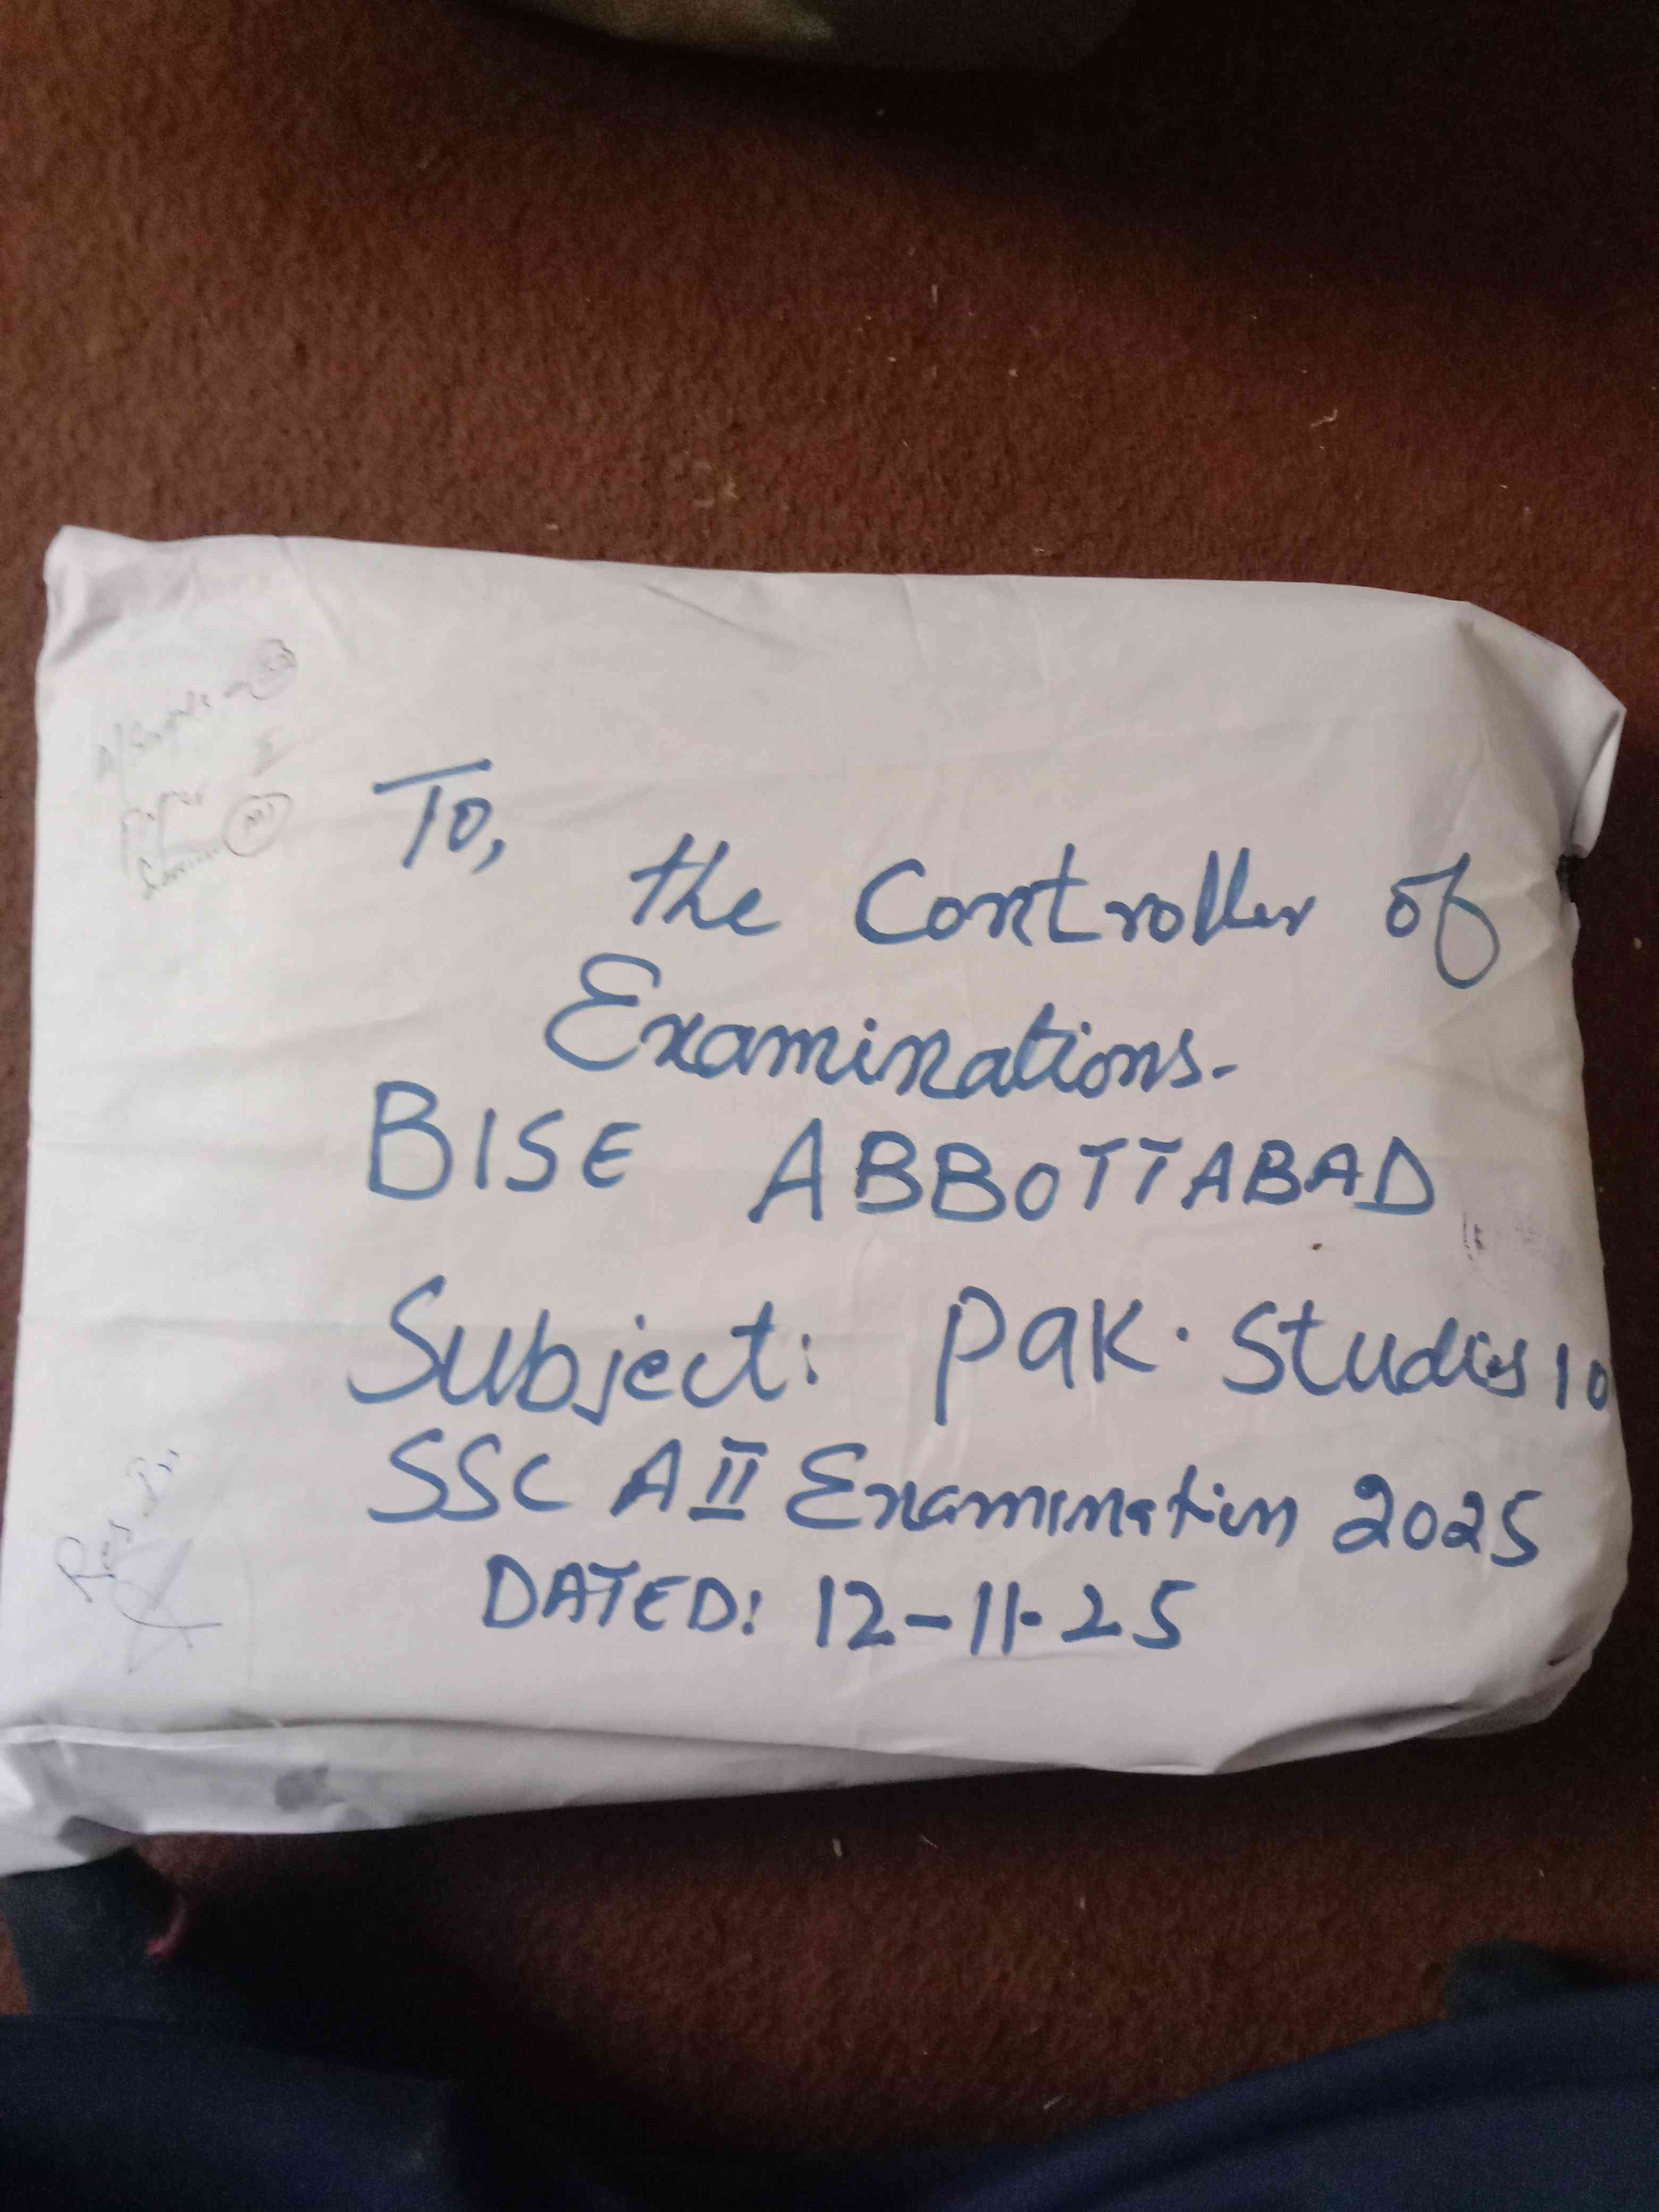 To,
the Controller of
Examinations.
BISE ABBOTTABAD
Subject: Pak. Studies 10
SSC A II Examination 2025
DATED: 12-11-25
paper